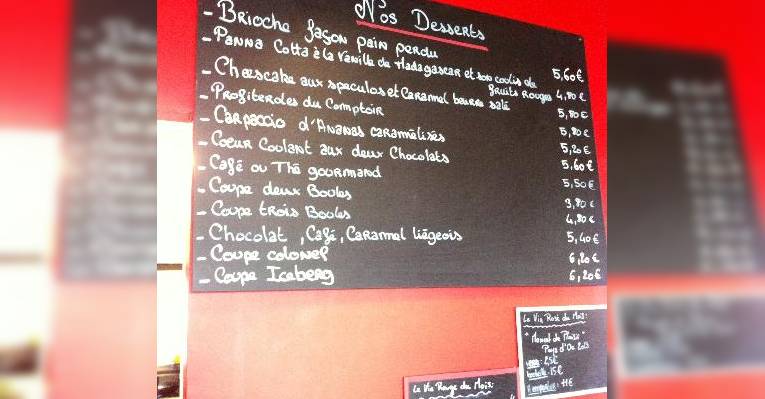 Nos Desserts
- Brioche façon pain perdu 5,60€
- Panna Cotta à la Vanille de Madagascar et son coulis de
fruits Rouges 4,80€
- Cheescake aux speculos et Caramel beurre salé 5,80€
- Profiteroles du Comptoir 5,80€
- Carpaccio d'Ananas caramélisés 5,20€
- Coeur Coulant aux deux Chocolats 5,60€
- Café ou Thé gourmand 5,50€
- Coupe deux Boules 3,80€
- Coupe trois Boules 4,80€
- Chocolat, Café, Caramel liégeois 5,40€
- Coupe colonel 6,20€
- Coupe Iceberg 6,20€
Le Vin Rosé du Mois:
Pays d'Oc 2013
2,5€
bouteille: 15€
11€
Le Vin Rouge du Mois: